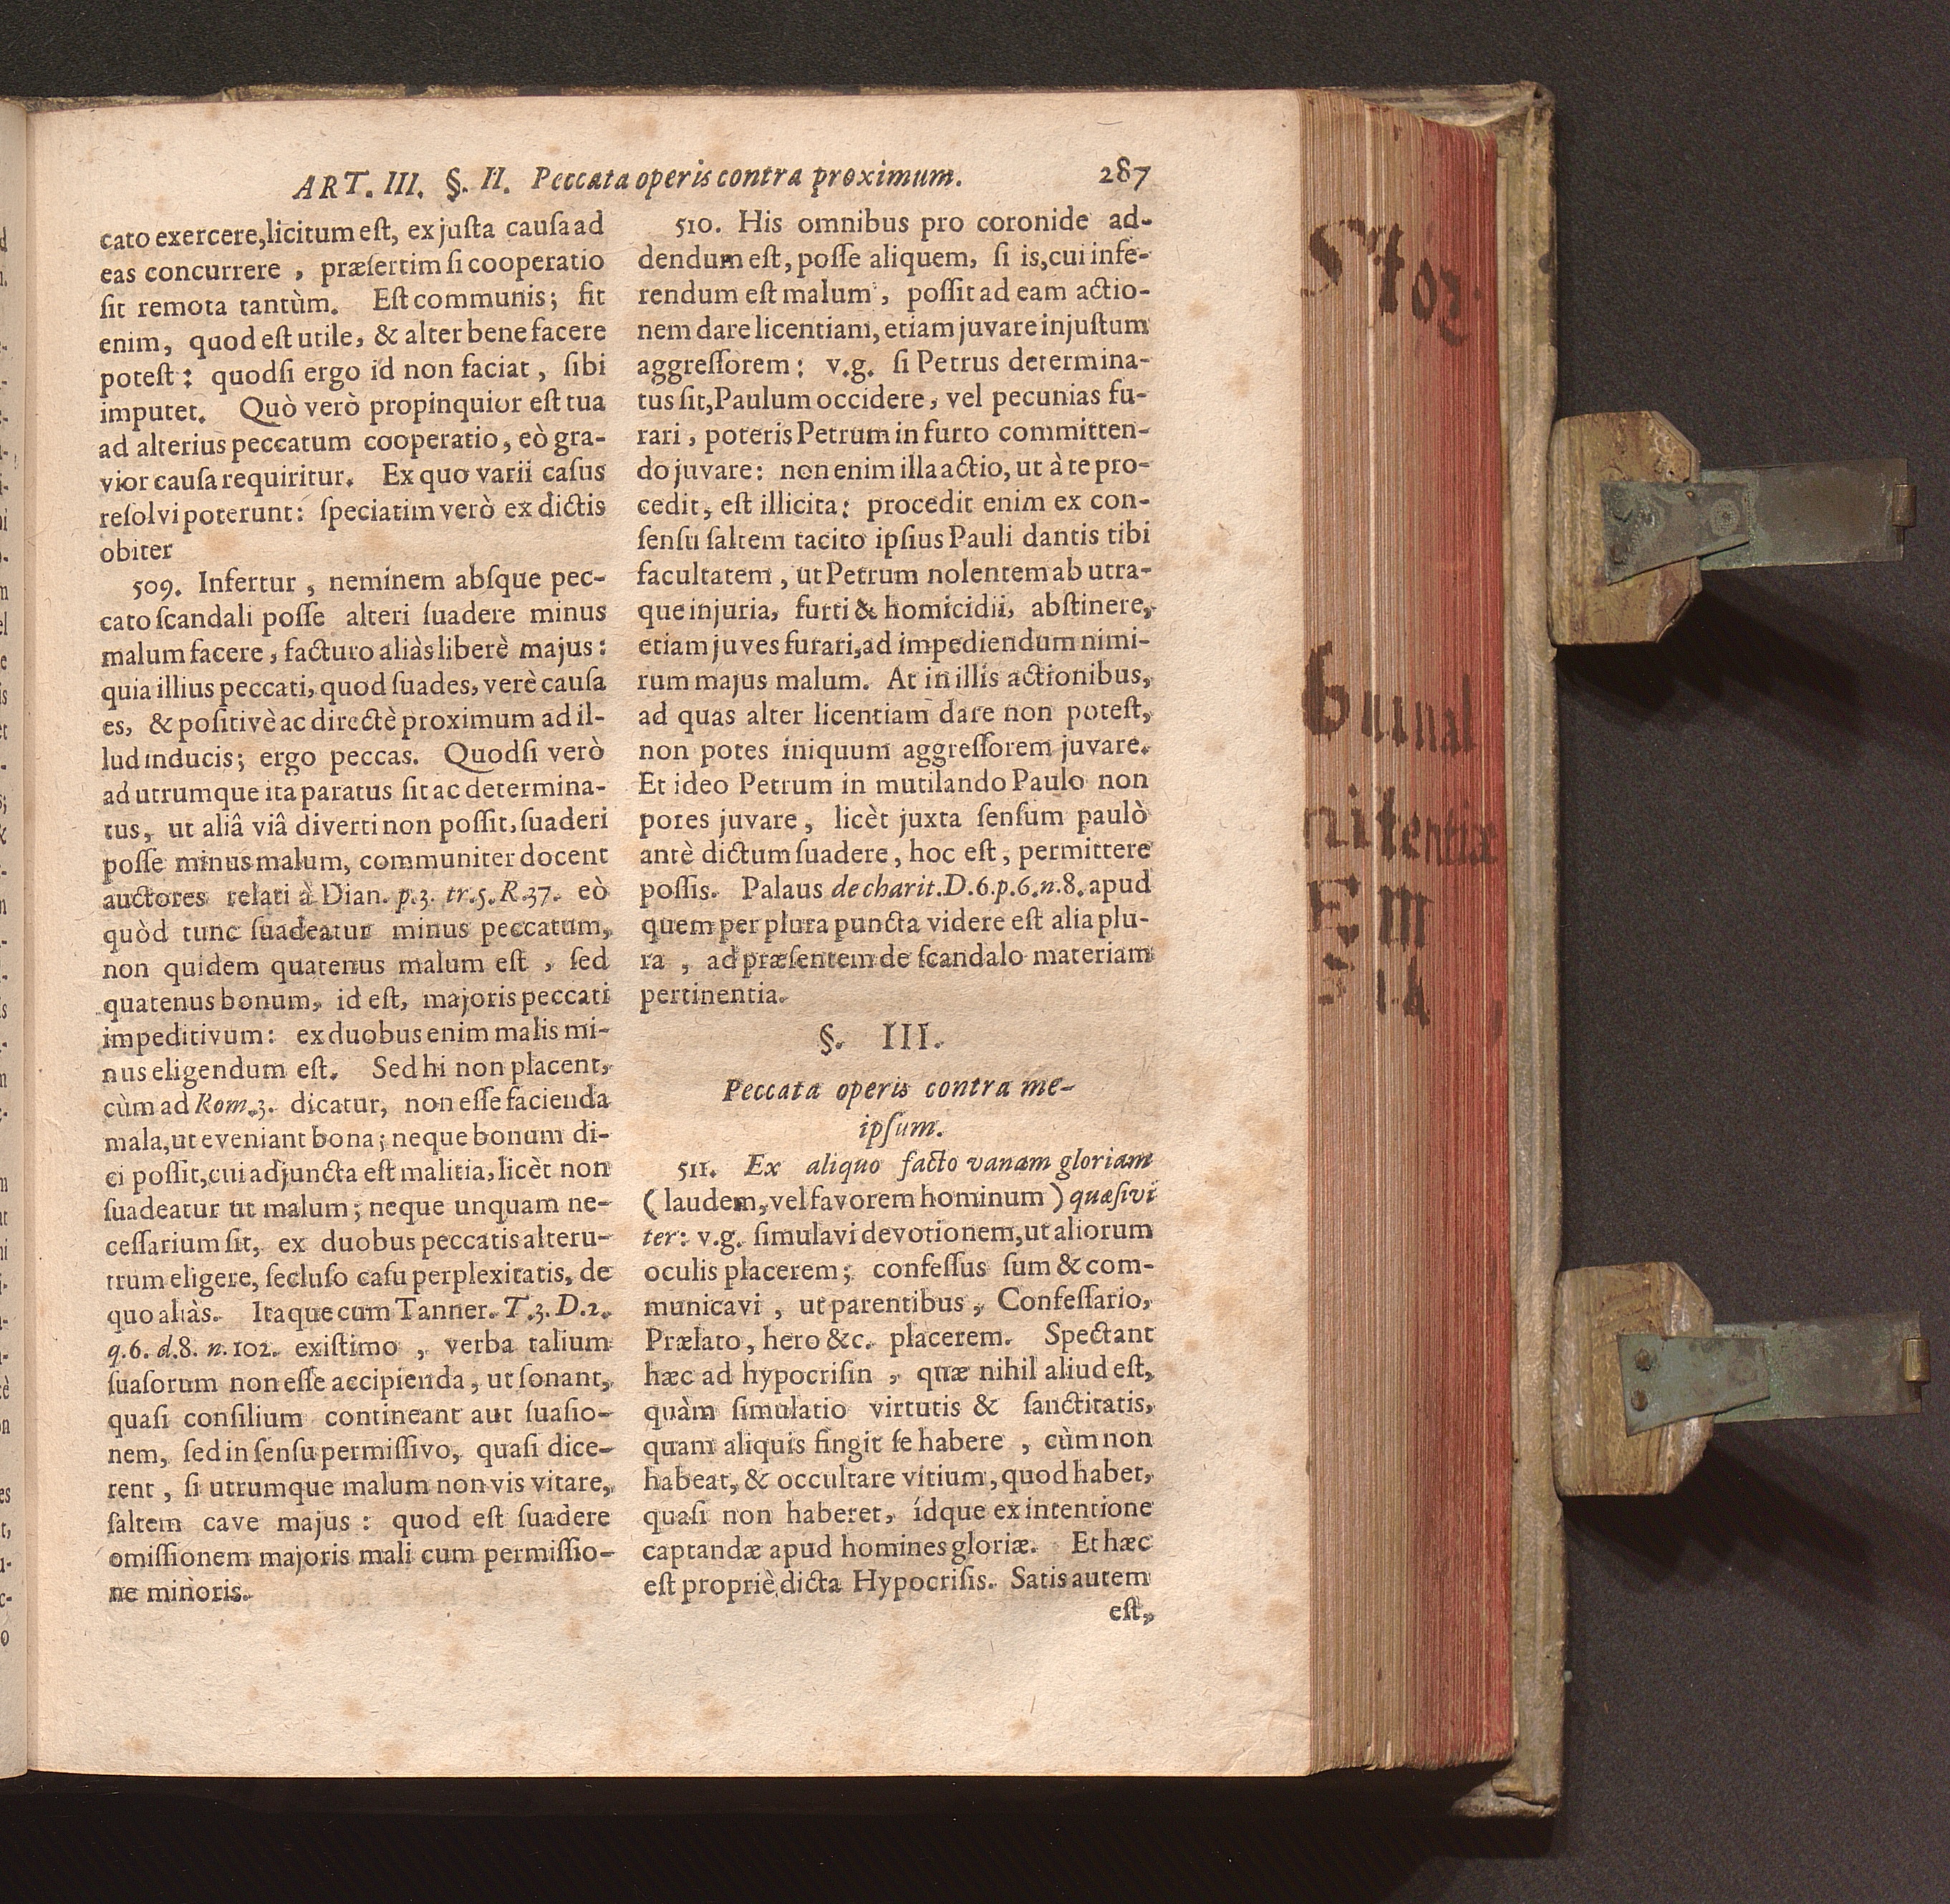 ART. III. §. II. Peccata operis contra proximum. 287
cato exercere, licitum est, ex justa causa ad
eas concurrere, præsertim si cooperatio
sit remota tantùm. Est communis; sit
enim, quod est utile, & alter bene facere
potest: quodsi ergo id non faciat, sibi
imputet. Quò verò propinquior est tua
ad alterius peccatum cooperatio, eò gra-
vior causa requiritur. Ex quo varii casus
resolvi poterunt: speciatim verò ex dictis
obiter
509. Infertur, neminem absque pec-
cato scandali posse alteri suadere minus
malum facere, facturo aliàs liberè majus:
quia illius peccati, quod suades, verè causa
es, & positivè ac directè proximum ad il-
lud inducis; ergo peccas. Quodsi verò
ad utrumque ita paratus sit ac determina-
tus, ut aliâ viâ diverti non possit, suaderi
posse minus malum, communiter docent
auctores relati à Dian. p.3. tr.5. R.37. eò
quòd tunc suadeatur minus peccatum,
non quidem quatenus malum est, sed
quatenus bonum, id est, majoris peccati
impeditivum: ex duobus enim malis mi-
nus eligendum est. Sed hi non placent,
cùm ad Rom.3. dicatur, non esse facienda
mala, ut eveniant bona; neque bonum di-
ci possit, cui adjuncta est malitia, licèt non
suadeatur ut malum; neque unquam ne-
cessarium sit, ex duobus peccatis alteru-
trum eligere, secluso casu perplexitatis, de
quo aliàs. Itaque cum Tanner. T.3. D.2.
q.6. d.8. n.102. existimo, verba talium
suasorum non esse accipienda, ut sonant,
quasi consilium contineant aut suasio-
nem, sed in sensu permissivo, quasi dice-
rent, si utrumque malum non vis vitare,
saltem cave majus: quod est suadere
omissionem majoris mali cum permissio-
ne minoris.
510. His omnibus pro coronide ad-
dendum est, posse aliquem, si is, cui infe-
rendum est malum, possit ad eam actio-
nem dare licentiam, etiam juvare injustum
aggressorem: v.g. si Petrus determina-
tus sit, Paulum occidere, vel pecunias fu-
rari, poteris Petrum in furto committen-
do juvare: non enim illa actio, ut à te pro-
cedit, est illicita: procedit enim ex con-
sensu saltem tacito ipsius Pauli dantis tibi
facultatem, ut Petrum nolentem ab utra-
que injuria, furti & homicidii, abstinere,
etiam juves furari, ad impediendum nimi-
rum majus malum. At in illis actionibus,
ad quas alter licentiam dare non potest,
non potes iniquum aggressorem juvare.
Et ideo Petrum in mutilando Paulo non
potes juvare, licèt juxta sensum paulò
antè dictum suadere, hoc est, permittere
possis. Palaus de charit. D.6. p.6. n.8. apud
quem per plura puncta videre est alia plu-
ra, ad præsentem de scandalo materiam
pertinentia.
§. III.
Peccata operis contra me-
ipsum.
511. Ex aliquo facto vanam gloriam
(laudem, vel favorem hominum) quæsivi
ter: v.g. simulavi devotionem, ut aliorum
oculis placerem; confessus sum & com-
municavi, ut parentibus, Confessario,
Prælato, hero &c. placerem. Spectant
hæc ad hypocrisin, quæ nihil aliud est,
quàm simulatio virtutis & sanctitatis,
quam aliquis fingit se habere, cùm non
habeat, & occultare vitium, quod habet,
quasi non haberet, idque ex intentione
captandæ apud homines gloriæ. Et hæc
est propriè dicta Hypocrisis. Satis autem
est,